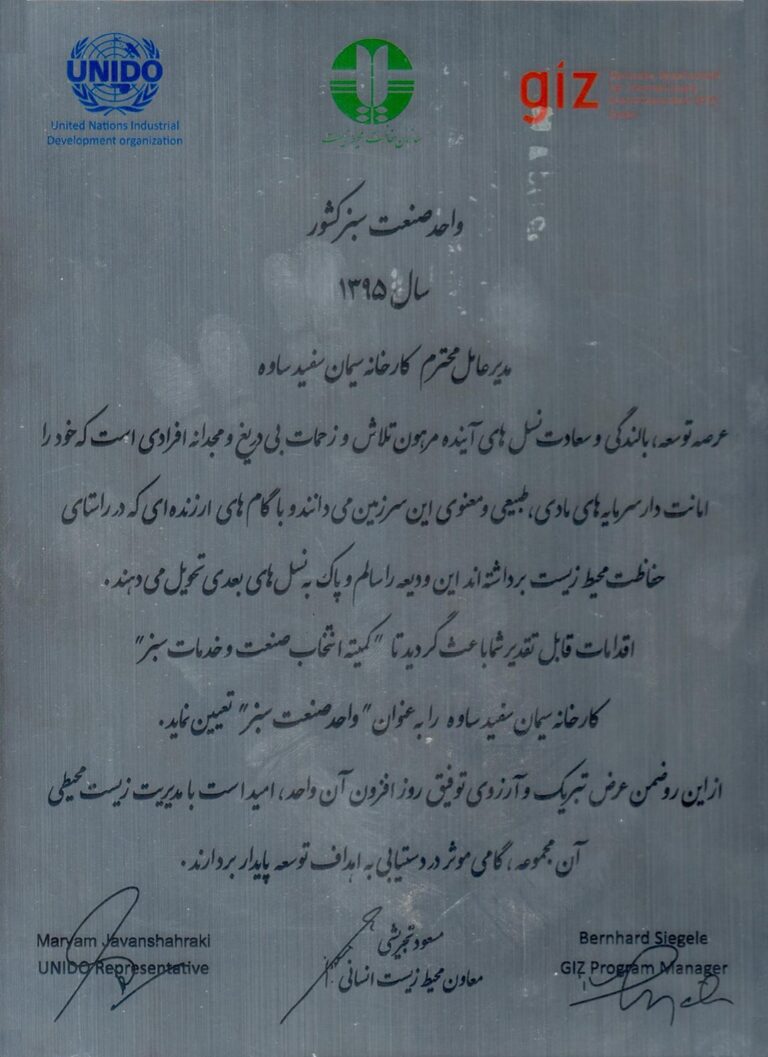 UNIDO
United Nations Industrial
Development organization
سازمان حفاظت محیط زیست
giz
واحد صنعت سبز کشور
سال ۱۳۹۵
مدیر عامل محترم کارخانه سیمان سفید ساوه
عرصه توسعه، بالندگی و سعادت نسل های آینده مرهون تلاش و زحمات بی دریغ و مجدانه افرادی است که خود را
امانت دار سرمایه های مادی، طبیعی و معنوی این سرزمین می دانند و با گام های ارزنده ای که در راستای
حفاظت محیط زیست برداشته اند این ودیعه را سالم و پاک به نسل های بعدی تحویل می دهند.
اقدامات قابل تقدیر شما باعث گردید تا "کمیته انتخاب صنعت و خدمات سبز"
کارخانه سیمان سفید ساوه را به عنوان "واحد صنعت سبز" تعیین نماید.
از این رو ضمن عرض تبریک و آرزوی توفیق روز افزون آن واحد، امید است با مدیریت زیست محیطی
آن مجموعه، گامی موثر در دستیابی به اهداف توسعه پایدار بردارند.
Maryam Javanshahraki
UNIDO Representative
مسعود تجریشی
معاون محیط زیست انسانی
Bernhard Siegele
GIZ Program Manager